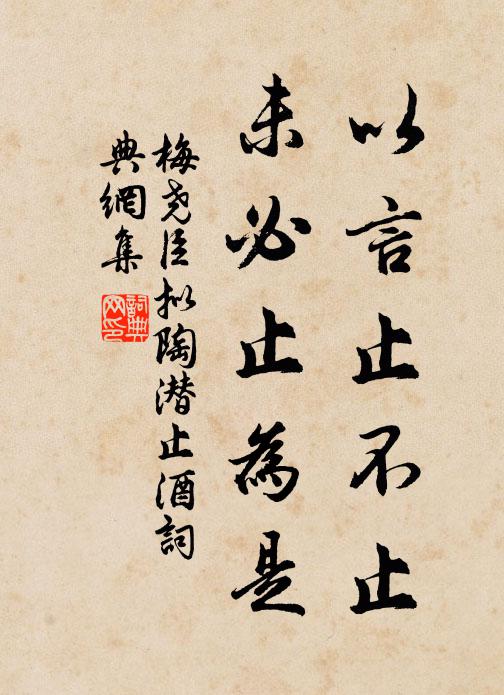 以言止不止
未必止為是
梅堯臣擬陶潜止酒詞
典網集
詞典网印